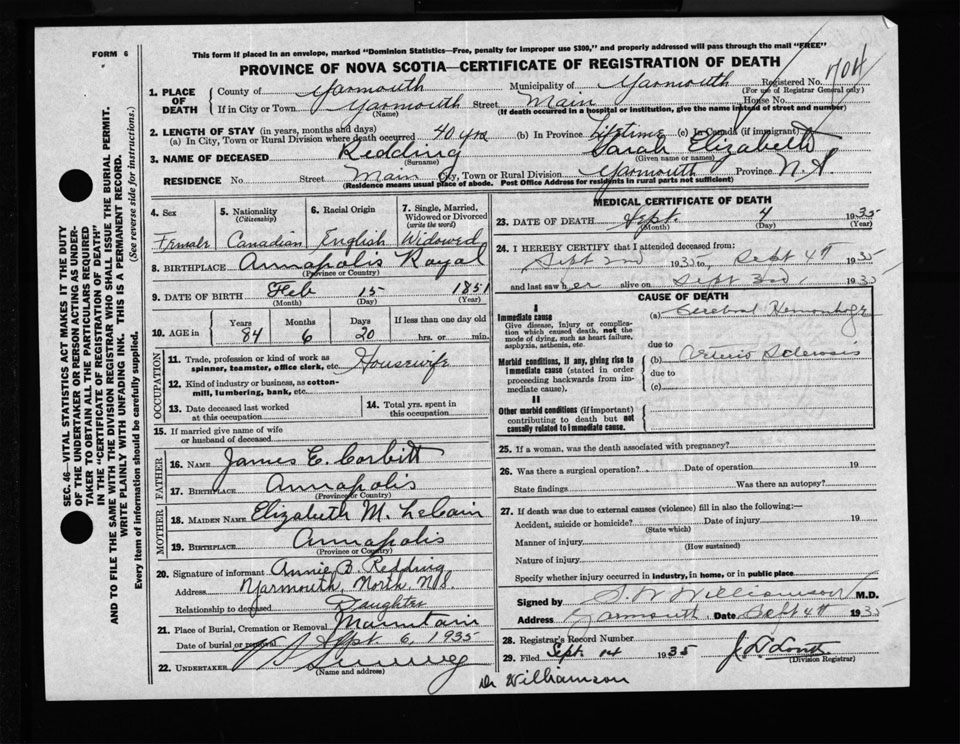 FORM 6
This form if placed in an envelope, marked "Dominion Statistics—Free, penalty for improper use $300," and properly addressed will pass through the mail "FREE"
PROVINCE OF NOVA SCOTIA—CERTIFICATE OF REGISTRATION OF DEATH
704
1. PLACE OF DEATH
County of Yarmouth Municipality of Yarmouth Registered No.
(For use of Registrar General only)
If in City or Town Yarmouth Street Main House No.
(Name) (If death occurred in a hospital or institution, give the name instead of street and number)
2. LENGTH OF STAY (in years, months and days)
(a) In City, Town or Rural Division where death occurred 40 yrs (b) In Province Lifetime (c) In Canada (if immigrant)
3. NAME OF DECEASED Redding Sarah Elizabeth
(Surname) (Given name or names)
RESIDENCE No. Street Main City, Town or Rural Division Yarmouth Province N.S.
(Residence means usual place of abode. Post Office Address for residents in rural parts not sufficient)
4. Sex 5. Nationality (Citizenship) 6. Racial Origin 7. Single, Married, Widowed or Divorced (write the word)
Female Canadian English Widowed
8. BIRTHPLACE Annapolis Royal
(Province or Country)
9. DATE OF BIRTH Feb 15 1851
(Month) (Day) (Year)
10. AGE in Years Months Days If less than one day old
84 6 20 hrs. or min.
OCCUPATION
11. Trade, profession or kind of work as spinner, teamster, office clerk, etc. Housewife
12. Kind of industry or business, as cotton-mill, lumbering, bank, etc.
13. Date deceased last worked at this occupation
14. Total yrs. spent in this occupation
15. If married give name of wife or husband of deceased
FATHER
16. NAME James E. Corbitt
17. BIRTHPLACE Annapolis
(Province or Country)
MOTHER
18. MAIDEN NAME Elizabeth M. LeCain
19. BIRTHPLACE Annapolis
(Province or Country)
20. Signature of informant Annie B. Redding
Address Yarmouth North N.S.
Relationship to deceased Daughter
21. Place of Burial, Cremation or Removal Mountain
Date of burial or removal Sept. 6, 1935
22. UNDERTAKER
(Name and address)
MEDICAL CERTIFICATE OF DEATH
23. DATE OF DEATH Sept. 4 1935
(Month) (Day) (Year)
24. I HEREBY CERTIFY that I attended deceased from:
Sept 2nd 1935 to Sept 4th 1935
and last saw her alive on Sept 3rd 1935
CAUSE OF DEATH
I
Immediate cause (a) Cerebral Hemorrhage
Give disease, injury or complication which caused death, not the mode of dying, such as heart failure, asphyxia, asthenia, etc.
due to
Morbid conditions, if any, giving rise to immediate cause (stated in order proceeding backwards from immediate cause). (b) Arterio Sclerosis
due to
(c)
II
Other morbid conditions (if important) contributing to death but not causally related to immediate cause.
25. If a woman, was the death associated with pregnancy?
26. Was there a surgical operation? Date of operation 19
State findings Was there an autopsy?
27. If death was due to external causes (violence) fill in also the following:—
Accident, suicide or homicide? Date of injury 19
(State which)
Manner of injury
(How sustained)
Nature of injury
Specify whether injury occurred in industry, in home, or in public place
Signed by S. W. Williamson M.D.
Address Yarmouth, Date Sept 4th 1935
28. Registrar's Record Number
29. Filed Sept. 14 1935
(Division Registrar)
Dr Williamson
SEC. 46—VITAL STATISTICS ACT MAKES IT THE DUTY OF THE UNDERTAKER OR PERSON ACTING AS UNDERTAKER TO OBTAIN ALL THE PARTICULARS REQUIRED IN THE "CERTIFICATE OF REGISTRATION OF DEATH" AND TO FILE THE SAME WITH THE DIVISION REGISTRAR WHO SHALL ISSUE THE BURIAL PERMIT.
WRITE PLAINLY WITH UNFADING INK. THIS IS A PERMANENT RECORD.
Every item of information should be carefully supplied. (See reverse side for instructions.)